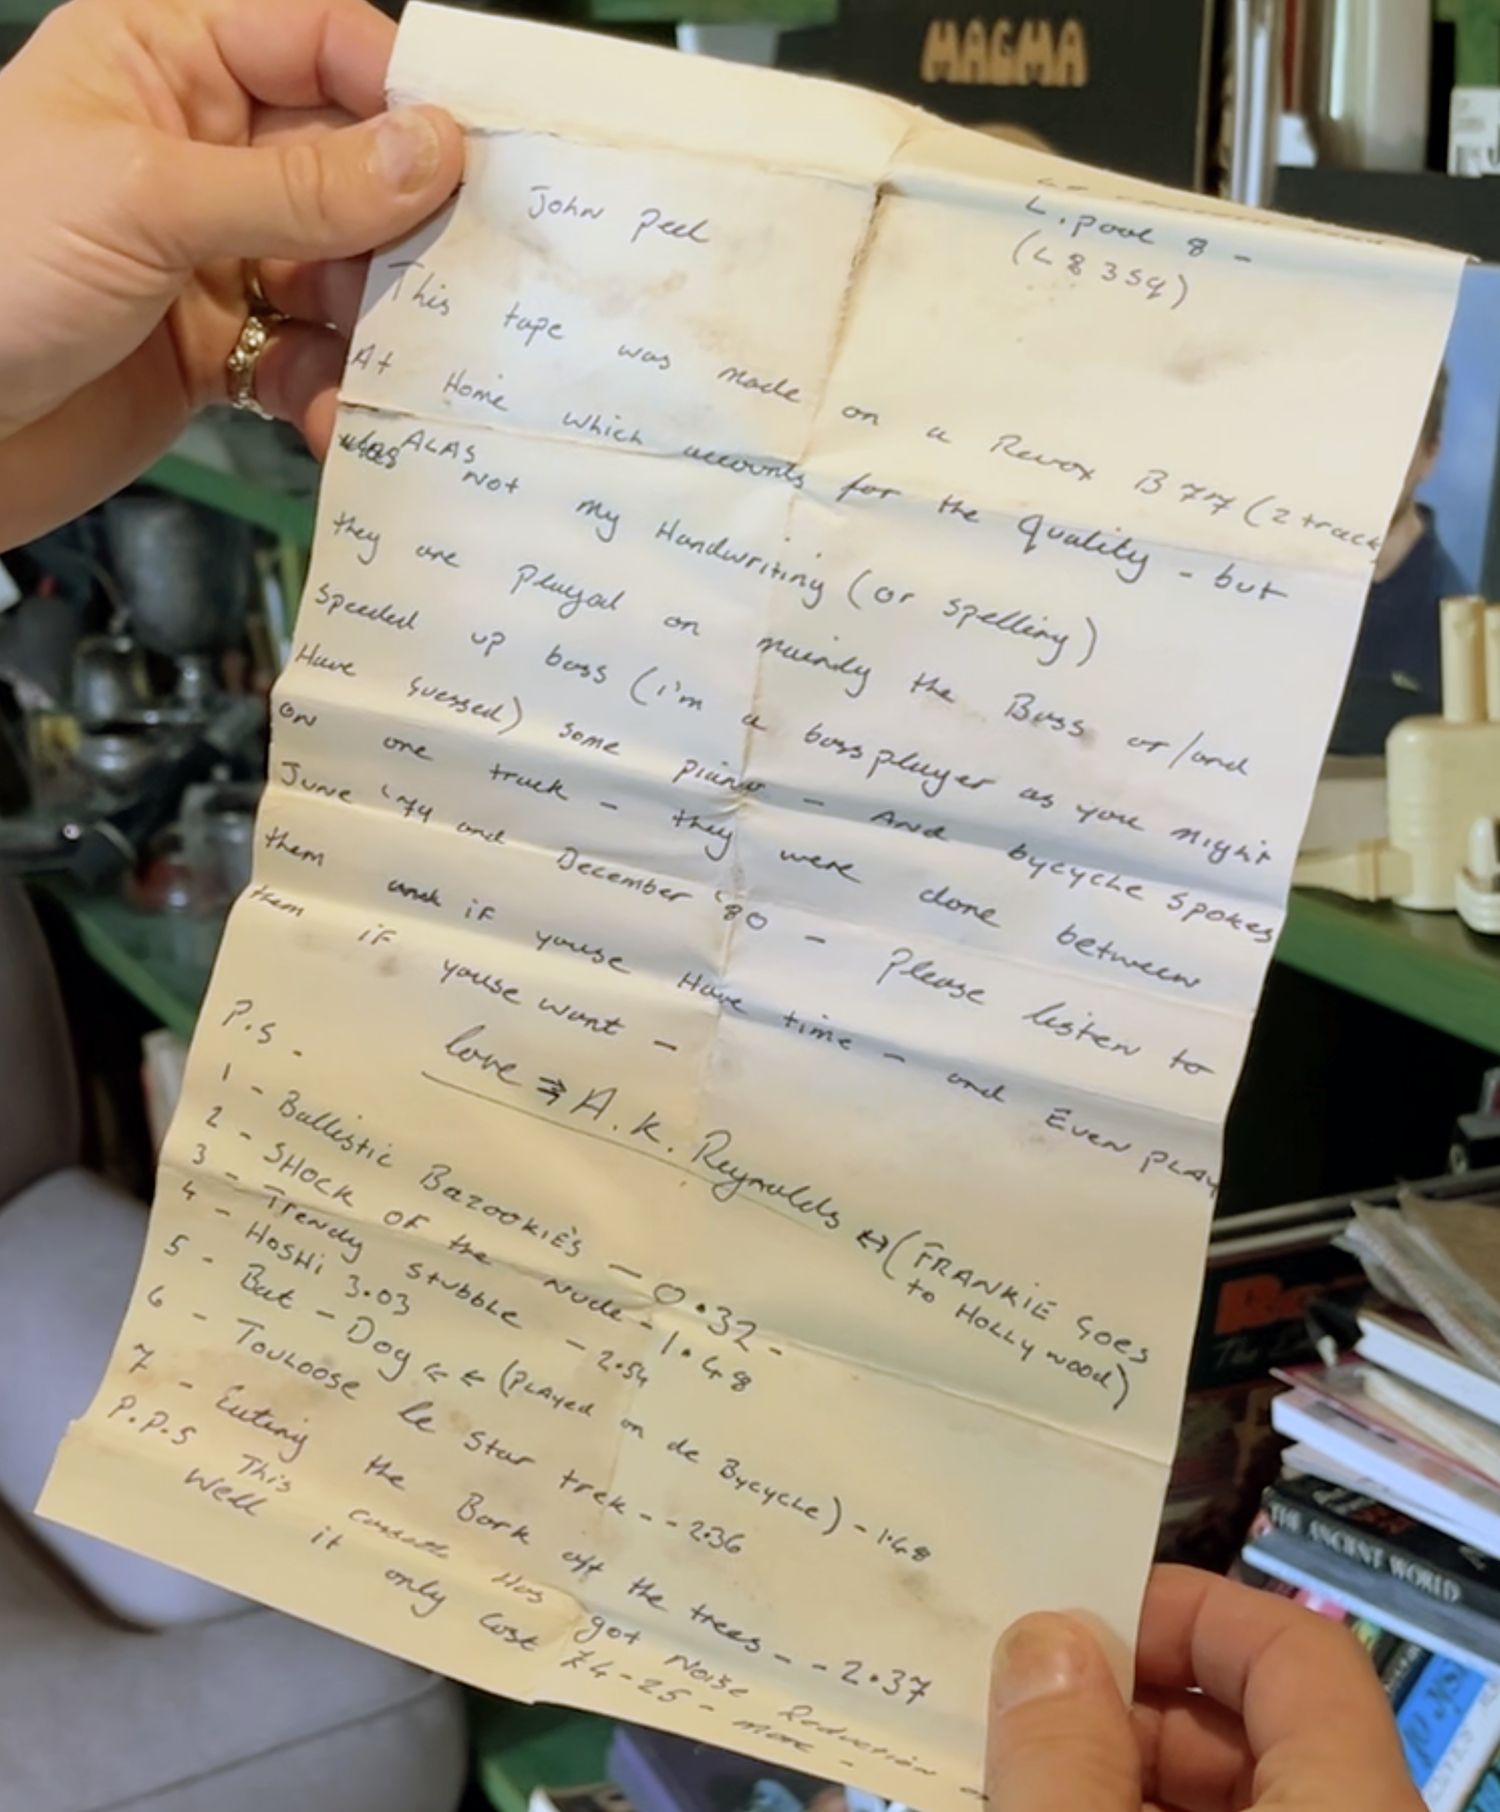 MAGMA
L.pool 8 -
(L8 3SQ)
John Peel
This tape was made on a Revox B77 (2 track
At Home which accounts for the Quality - but
ALAS not my Handwriting (or spelling)
they are played on mainly the Bass or/and
speeded up bass (i'm a bass player as you might
Have guessed) some piano - And bycycle spokes
ON one track - they were done between
June '79 and December '80 - Please listen to
them and if youse Have time - and Even PLAY
them if youse want -
love A.K. Reynolds (FRANKIE Goes
to HOLLYwood)
P.S -
1 - Ballistic Bazookiès - 0.32 -
2 - SHOCK OF the nude - 1.48
3 - Trendy stubble - 2.54
4 - HOSHi 3.03
5 - Bat - Dog (PLAYed on de Bycycle) - 1.48
6 - TOULOOSE le Star trek - - 2.36
7 - Eating the Bark off the trees - - 2.37
P.P.S This cassette Has got Noise Reduction
Well it only cost £4-25 - more -
THE ANCIENT WORLD